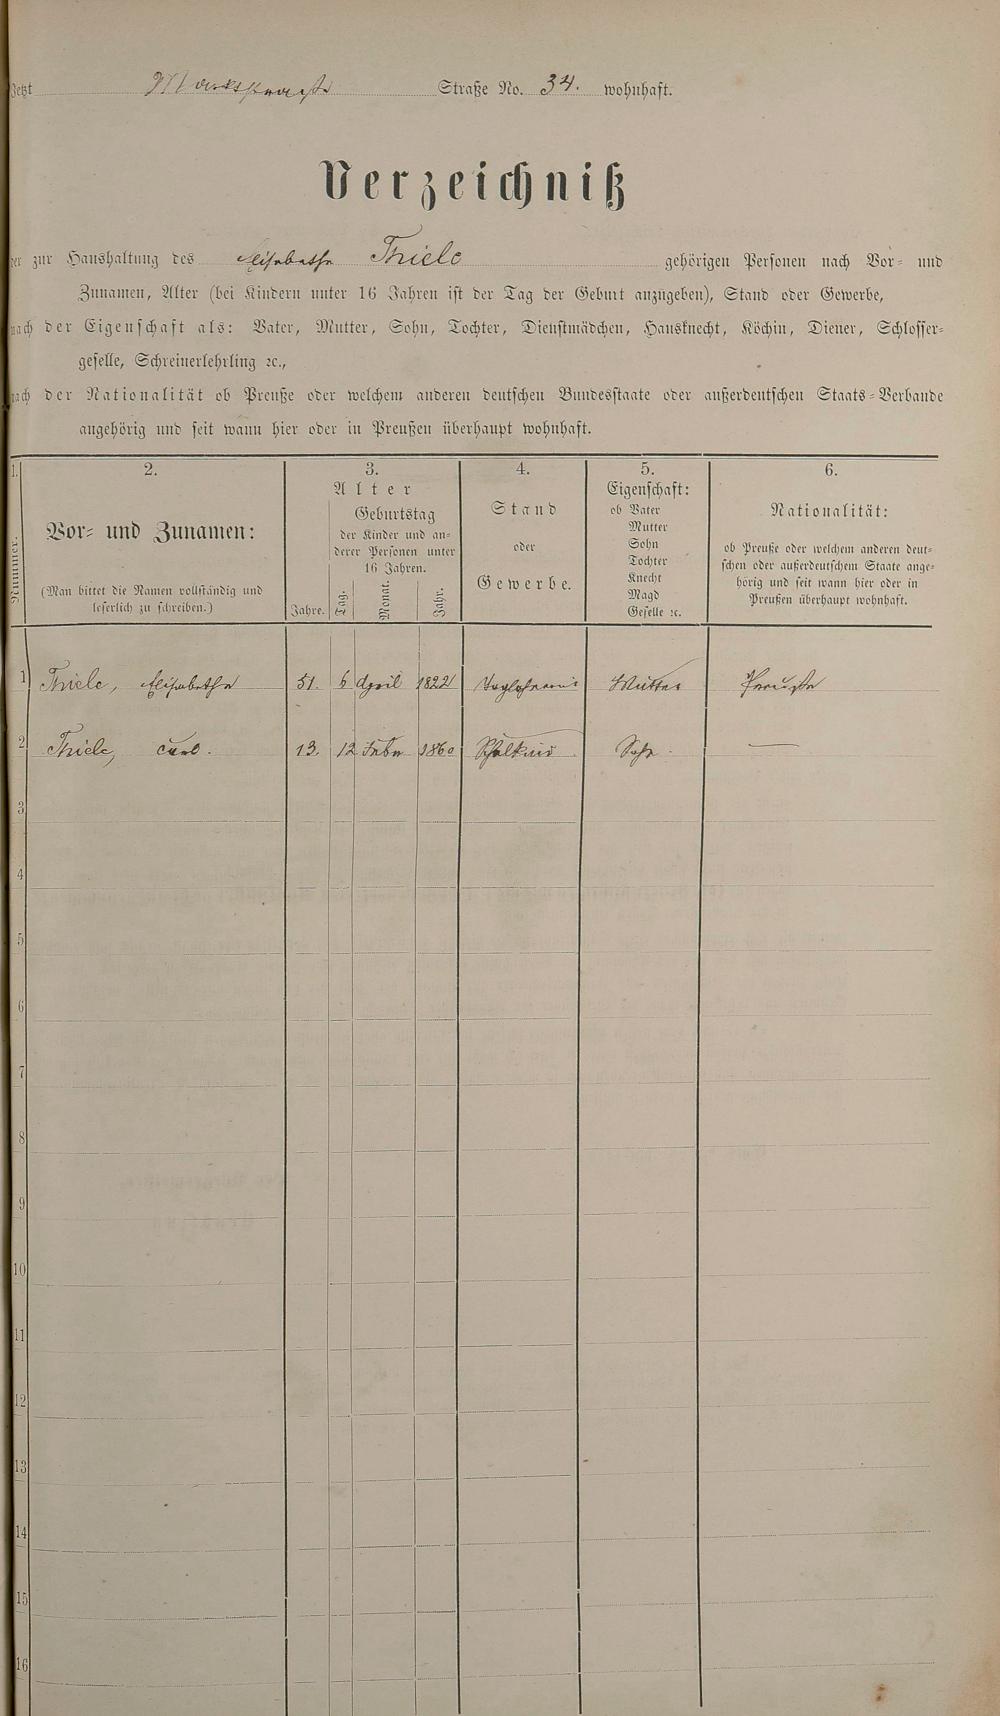 Jetzt Marktstraße Straße No. 34. wohnhaft.
Verzeichniß
der zur Haushaltung des Elisabetha Thiele gehörigen Personen nach Vor- und
Zunamen, Alter (bei Kindern unter 16 Jahren ist der Tag der Geburt anzugeben), Stand oder Gewerbe,
nach der Eigenschaft als: Vater, Mutter, Sohn, Tochter, Dienstmädchen, Hausknecht, Köchin, Diener, Schlosser-
geselle, Schreinerlehrling ꝛc.,
nach der Nationalität ob Preuße oder welchem anderen deutschen Bundesstaate oder außerdeutschen Staats-Verbande
angehörig und seit wann hier oder in Preußen überhaupt wohnhaft.
1. 2. 3. 4. 5. 6.
Nummer.
Vor- und Zunamen:
(Man bittet die Namen vollständig und
leserlich zu schreiben.)
Alter
Jahre.
Geburtstag
der Kinder und an-
derer Personen unter
16 Jahren.
Tag. Monat. Jahr.
Stand
oder
Gewerbe.
Eigenschaft:
ob Vater
Mutter
Sohn
Tochter
Knecht
Magd
Geselle ꝛc.
Nationalität:
ob Preuße oder welchem anderen deut-
schen oder außerdeutschem Staate ange-
hörig und seit wann hier oder in
Preußen überhaupt wohnhaft.
1 Thiele, Elisabetha 51. 6 April 1822 Taglöhnerin Mutter Preuße
2 Thiele, Carl. 13. 12 Febr 1860 Schulkind Sohn. —
3
4
5
6
7
8
9
10
11
12
13
14
15
16